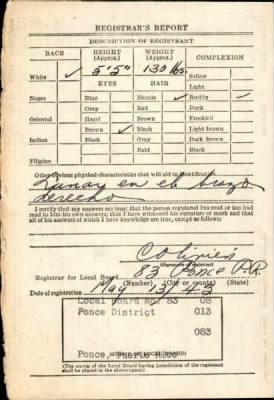 REGISTRAR'S REPORT
DESCRIPTION OF REGISTRANT
RACE HEIGHT (Approx.) WEIGHT (Approx.) COMPLEXION
White ✓ 5'5" 130 lbs. Sallow
EYES HAIR Light
Negro Blue Blonde Ruddy ✓
Gray Red Dark
Oriental Hazel Brown Freckled
Brown ✓ Black ✓ Light Brown
Indian Black Gray Dark Brown
Bald Black
Filipino
Other obvious physical characteristics that will aid in identification
Lunar en el brazo
derecho
I certify that my answers are true; that the person registered has read or has had
read to him his own answers; that I have witnessed his signature or mark and that
all of his answers of which I have knowledge are true, except as follows:
(Signature of registrar)
Registrar for Local Board 83 Ponce P.R.
(Number) (City or county) (State)
Date of registration May 13/43
Local Board No. 83 08
Ponce District 013
083
Ponce, Puerto Rico
(STAMP OF LOCAL BOARD)
(The stamp of the Local Board having jurisdiction of the registrant
shall be placed in the above space.)